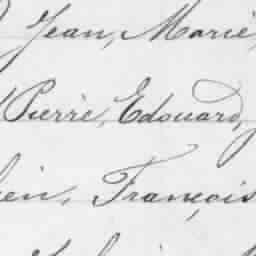 Jean, Marie,
Pierre, Edouard,
ien, François